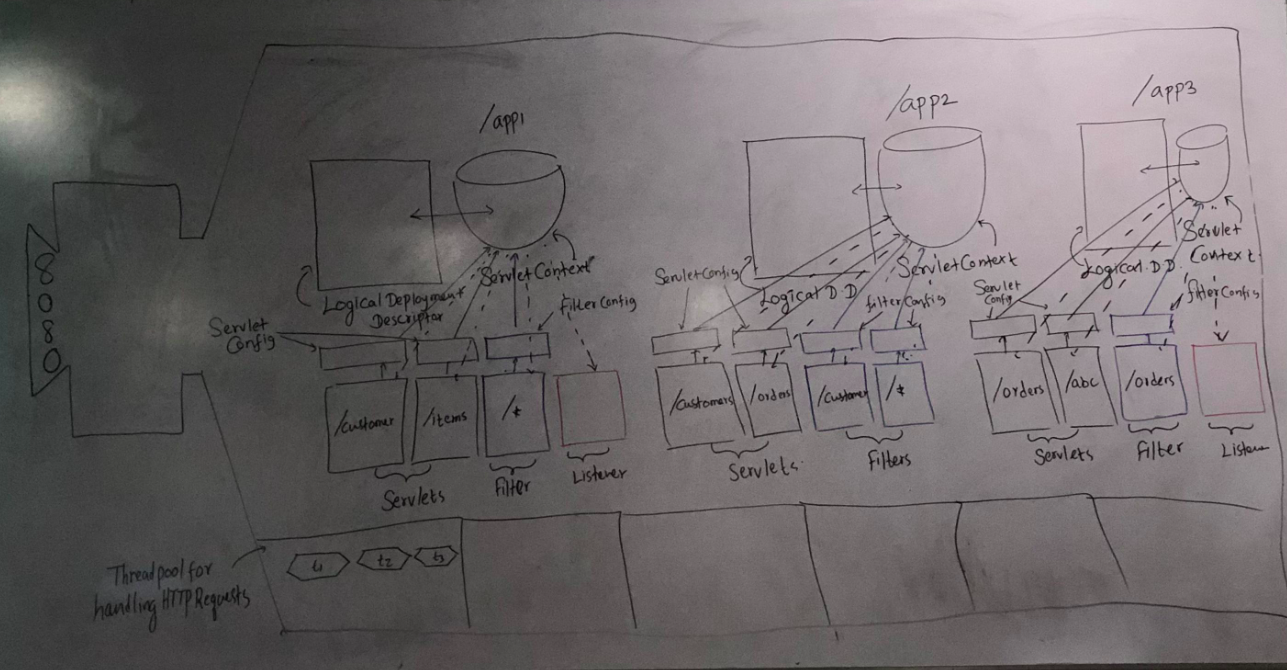 8080
/app1
Logical Deployment
Descriptor
ServletContext
Servlet
Config
FilterConfig
/customer
/items
/*
Servlets
Filter
Listener
/app2
ServletConfig
Logical D.D
ServletContext
filterConfig
/customers
/orders
/customer
/*
Servlets
Filters
/app3
Servlet
Context
Logical.D.D
Servlet
Config
filterConfig
/orders
/abc
/orders
Servlets
Filter
Listener
Threadpool for
handling HTTP Requests
t1
t2
t3